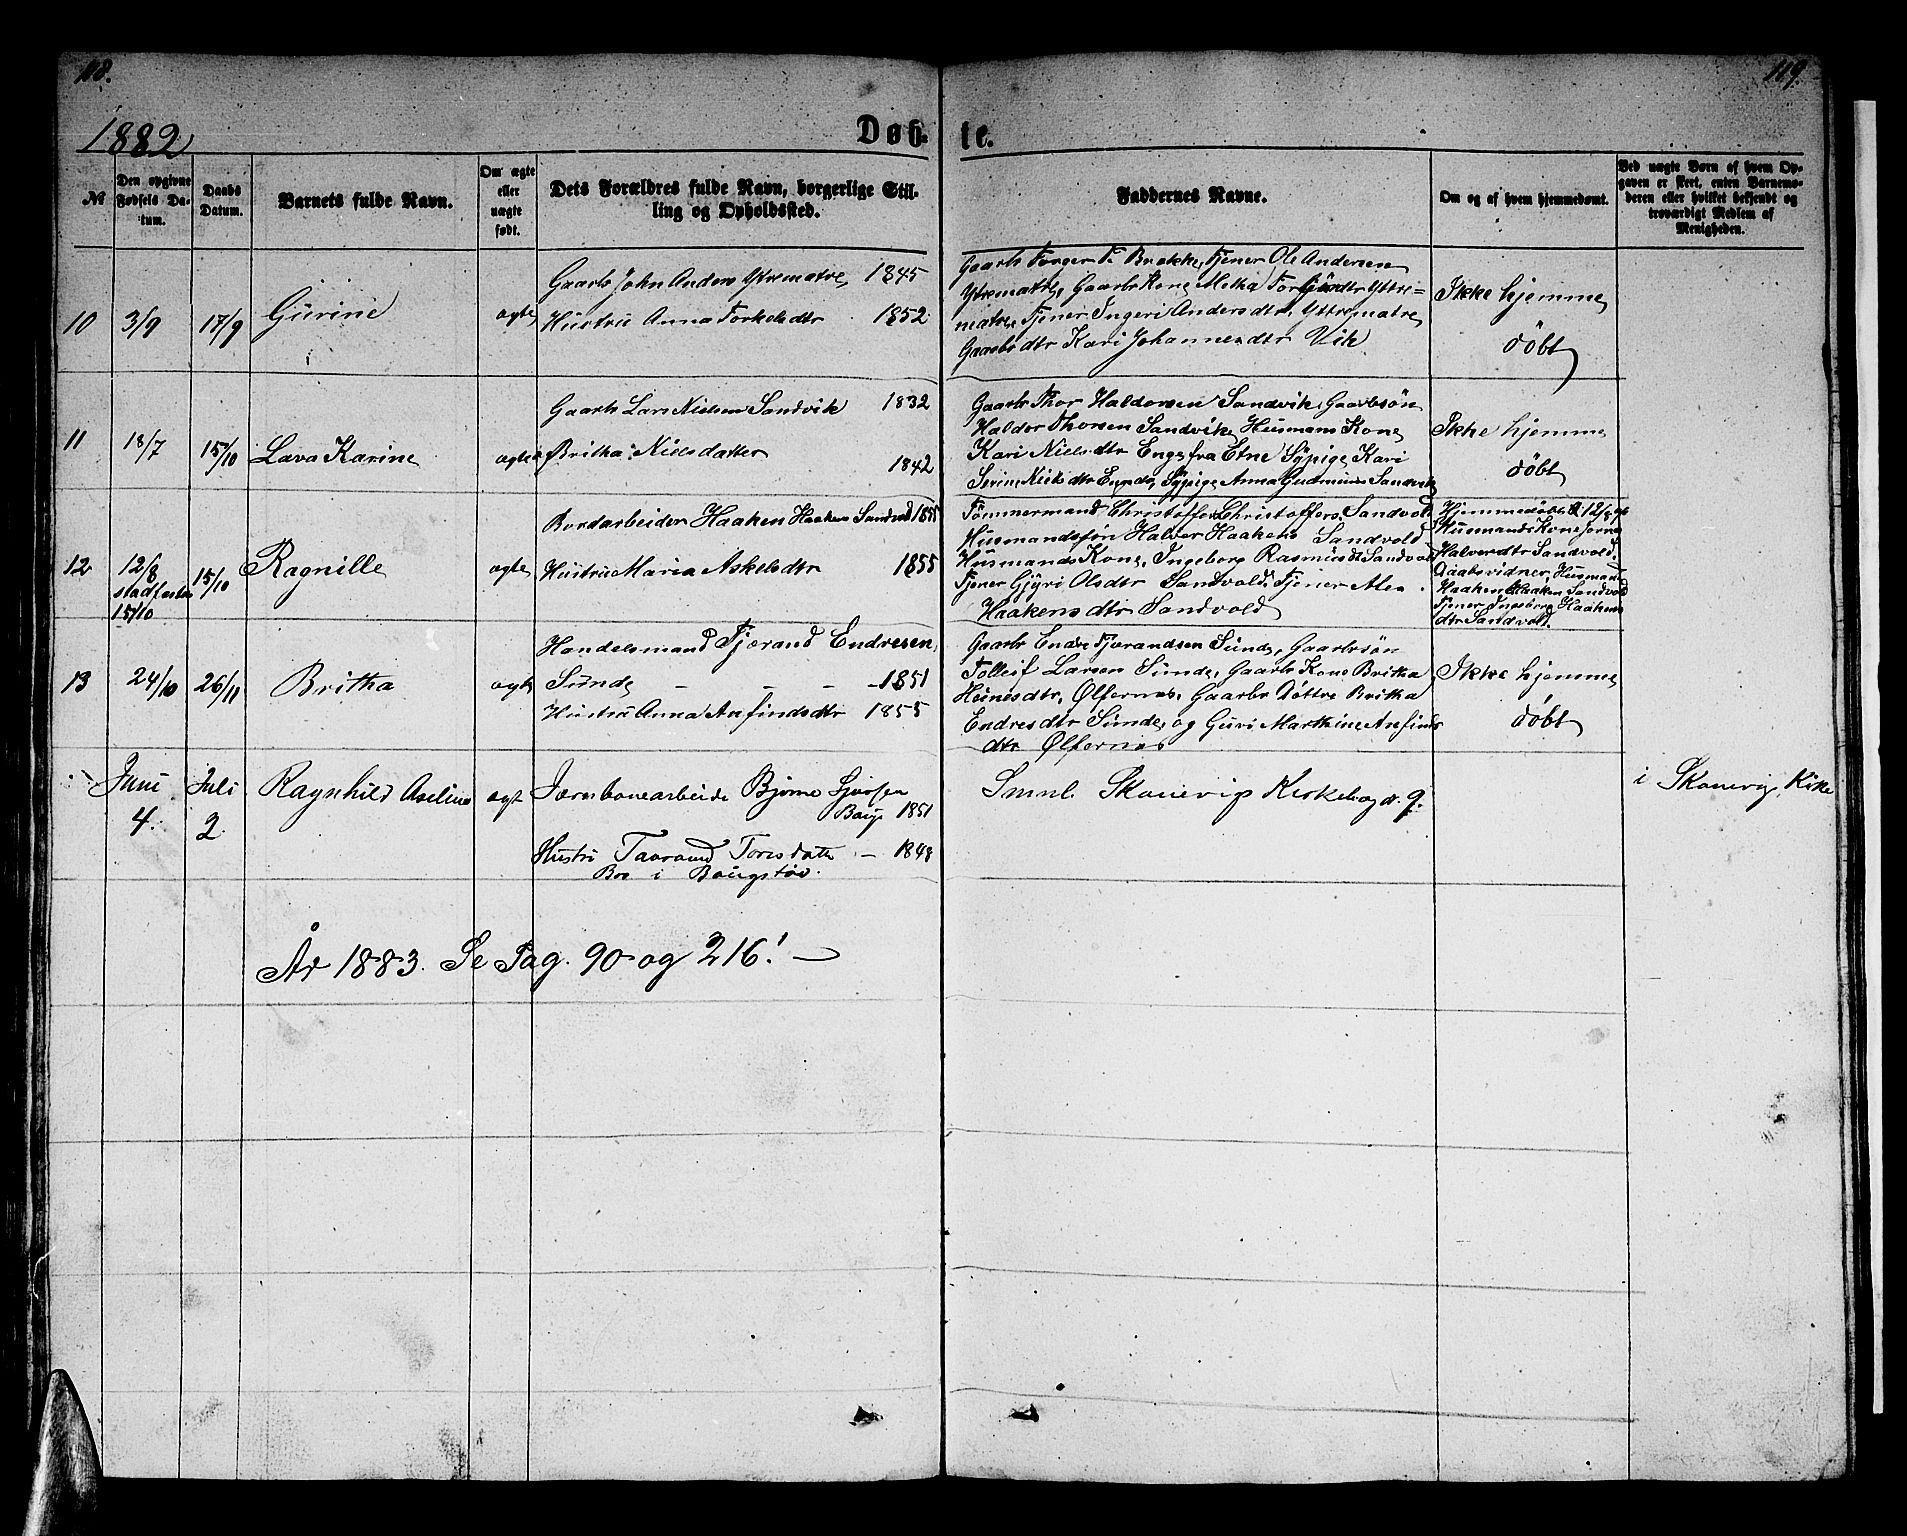 118.
119.
1882
Døb-
te.
No
Den opgivne Fødsels Datum.
Daabs Datum.
Barnets fulde Navn.
Om ægte eller uægte født.
Dets Forældres fulde Navn, borgerlige Stilling og Opholdssted.
Faddernes Navne.
Om og af hvem hjemmedømt.
Ved uægte Børn af hvem Opgaven er skeet, enten Barnemoderen eller hvilket bekjendt og troværdigt Medlem af Menigheden.
10 3/9 17/9 Gurine ægte
Gaarb John Anders Ytrematre, 1845
Hustru Anna Torkelsdtr 1852
Gaarb Torger T. Brekke, Tjener Ole Andersen
Ytrematre, Gaarbr Kone Metha Torgersdtr Yttre=
matre, Tjener Ingeri Andersdtr, Yttrematre
Gaarbr dtr Kari Johannesdtr Vik
Ikke hjemme
døbt
11 18/7 15/10 Lava Karine ægte
Gaarb Lars Nielsen Sandvik 1832
Britha Nielsdatter
1842
Gaarbr Thor Haldorsen Sandvik, Gaarbsøn
Haldor Thorsen Sandvik, Husmans Kone
Kari Nielsdtr Enge fra Etne Sypige Kari
Serine Niels dtr Sypige Anna Sandvik
Ikke hjemme
døbt
12 12/8 stadfestes 15/10 15/10 Ragnille ægte
Bordarbeider Haaken Haakens Sandvold 1855
Hustru Maria Askelsdtr 1855
Tømmermand Christoffer Christoffers. Sandvold
Husmandsøn Halvor Haakens Sandvold
Husmands Kone, Ingeborg Rasmusdt Sandvold
Tjener Gjyri Olsdtr Sandvold. Tjener
Haakensdtr Sandvold
Hjemmedøbt 12/8 af
Husmands Kone
Halvordtr Sandvold.
Daabsvidner, Husmand
Haaken Haaken Sandvold
Tjener Ingeborg Haakens
dtr Sandvold.
13 24/10 26/11 Britha ægte
Handelsmand Tjerand Endresen,
Sunde - - - 1851
Hustru Anna Anfindsdtr 1855
Gaarbr Endre Tjerandsen Sunde, Gaarbsøn
Tolleif Larsen Sunde, Gaarb Kone Britha
Heinesdtr, Ølfernes, Gaarbr Døttre Britha
Endresdtr Sunde, og Guri Marthine Anfinds
dtr Ølfernes
Ikke hjemme
døbt
Juni 4. Juli 2 Ragnhild Aseline ægt
Jernbanearbeide Bjørne Sjursen
Bauge 1851
Hustru Taaraand Toresdatte - 1848
Bor i Baugstøv.
Smnl. Skonevig Kirkebog Nr. 9.
i Skonevig Kirke
År 1883. Se Pag. 90 og 216! -